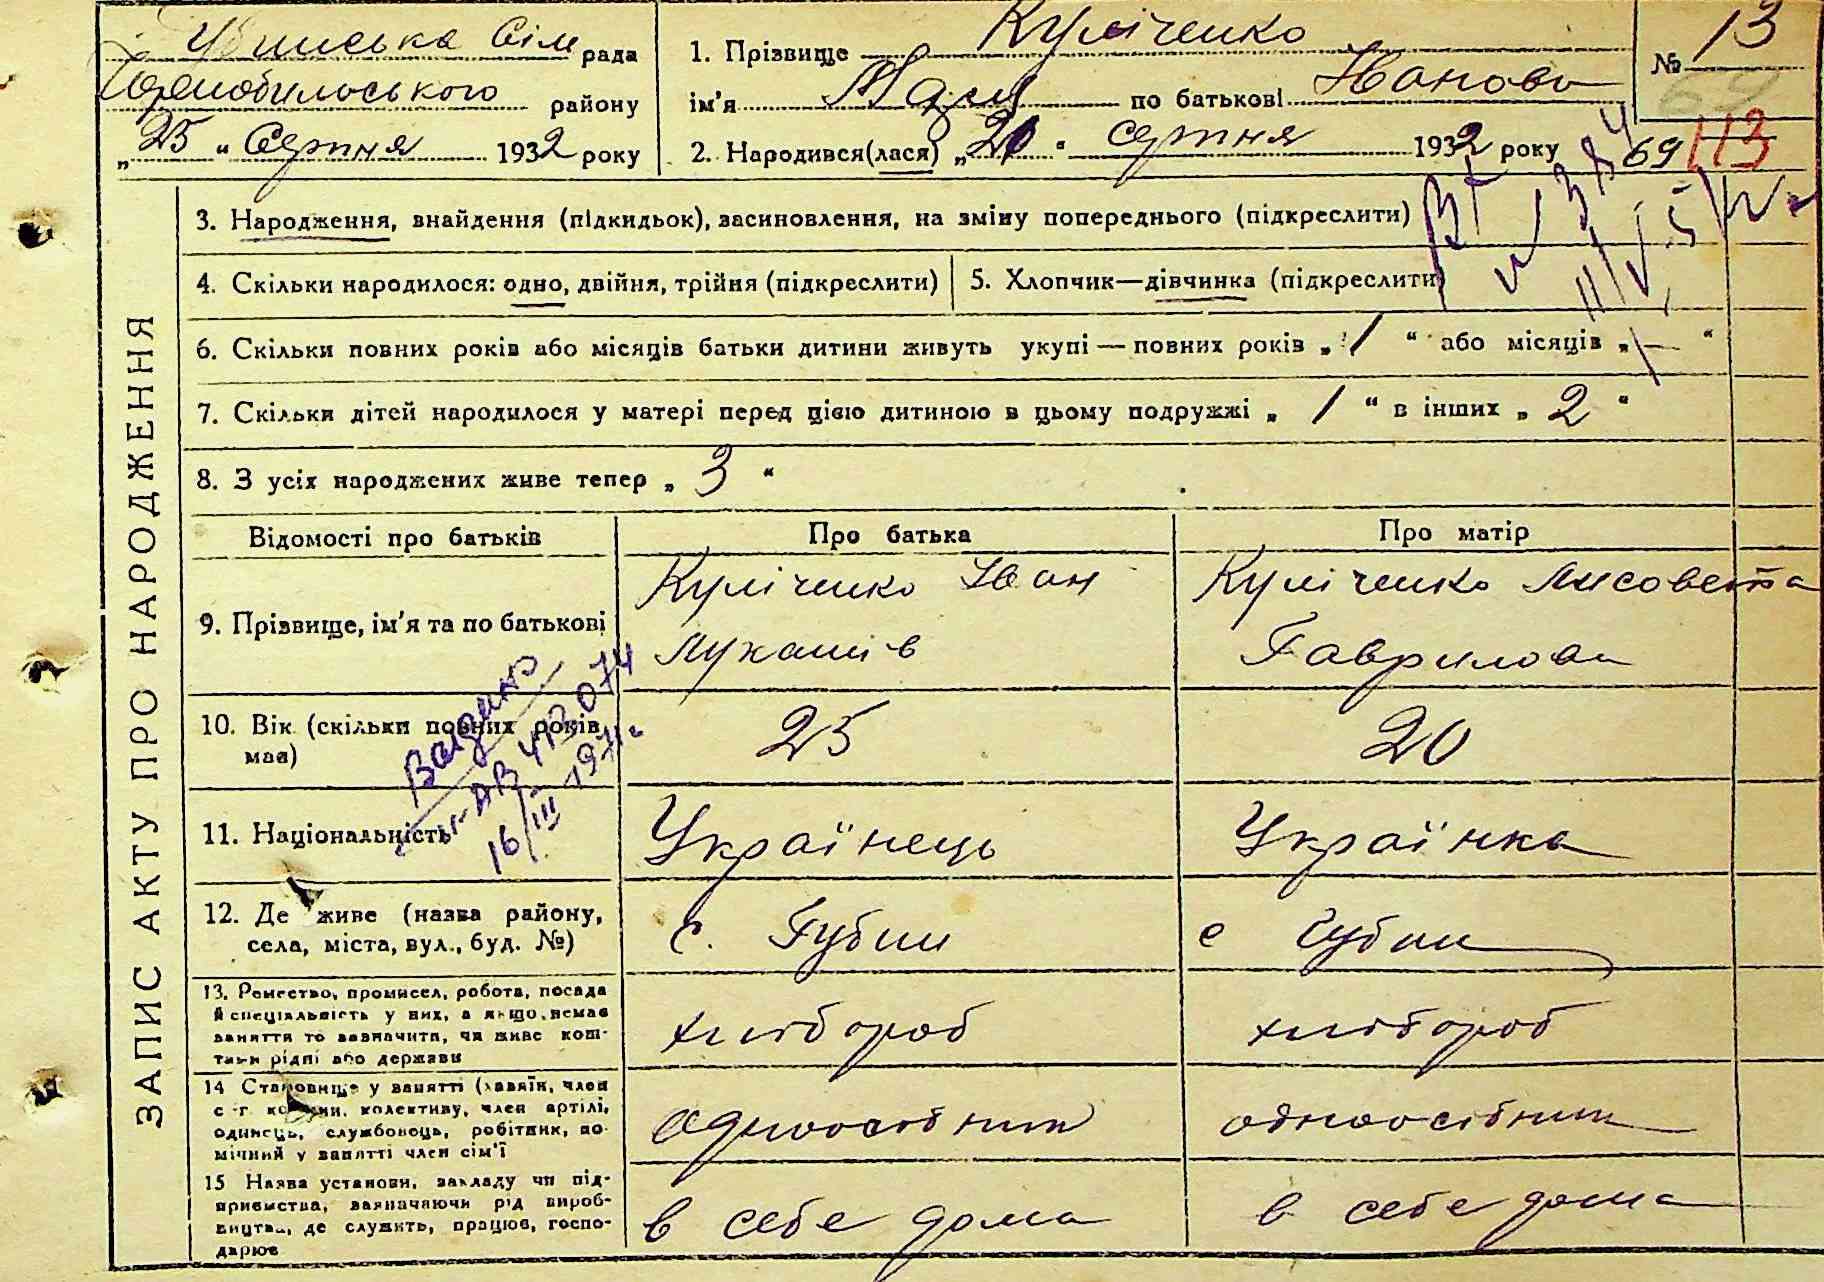 рада
Чорнобильського району
„25“ Серпня 1932 року
1. Прізвище Куліченко
ім'я по батькові Іванова
2. Народився(лася) „20“ серпня 1932 року
№ 13
69
69 113
ЗАПИС АКТУ ПРО НАРОДЖЕННЯ
3. Народження, внайдення (підкидьок), засиновлення, на зміну попереднього (підкреслити)
4. Скільки народилося: одно, двійня, трійня (підкреслити)
5. Хлопчик—дівчинка (підкреслити)
6. Скільки повних років або місяців батьки дитини живуть укупі — повних років „1“ або місяців „—“
7. Скільки дітей народилося у матері перед цією дитиною в цьому подружжі „1“ в інших „2“
8. З усіх народжених живе тепер „3“
Відомості про батьків
Про батька
Про матір
9. Прізвище, ім'я та по батькові
Куліченко Іван
Лукашів
Куліченко Лисовета
Гаврилова
10. Вік (скільки повних років
має)
25
20
16/III 1971г
11. Національність
Українець
Українка
12. Де живе (назва району,
села, міста, вул., буд. №)
с. Губин
с Губин
13. Ремество, промисел, робота, посада
й спеціяльність у них, а якщо немає
заняття то зазначити, чи живе кош-
тами рідні або держави
хлібороб
хлібороб
14 Становище у занятті (хазяїн, член
с-г. комуни, колективу, член артілі,
одинець, службовець, робітник, по-
мічний у занятті член сім'ї
одноосібник
одноосібник
15 Назва установи, закладу чи під-
приємства, зазначаючи рід вироб-
ництва, де служить, працює, госпо-
дарює
в себе дома
в себе дома